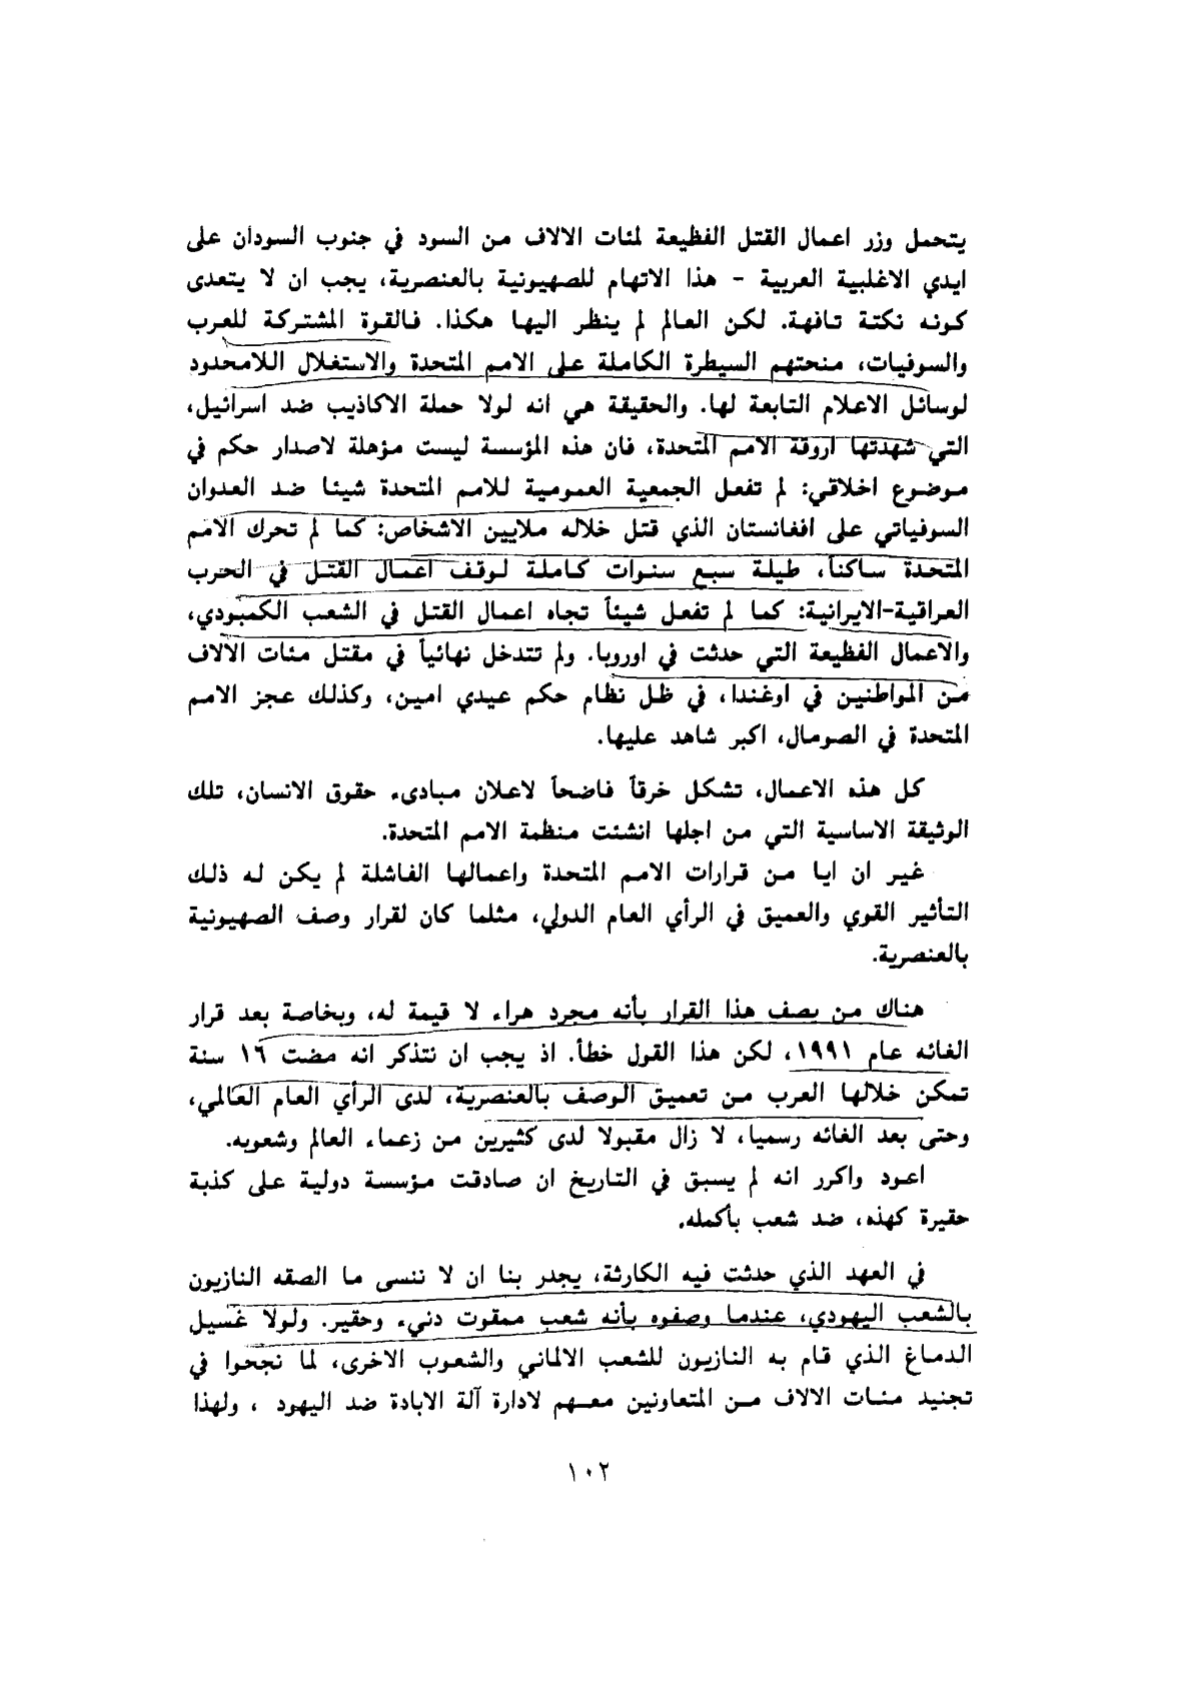 يتحمل وزر اعمال القتل الفظيعة لمئات الالاف من السود في جنوب السودان على
ايدي الاغلبية العربية - هذا الاتهام للصهيونية بالعنصرية، يجب ان لا يتعدى
كونه نكتة تافهة. لكن العالم لم ينظر اليها هكذا. فالقوة المشتركة للعرب
والسوفيات، منحتهم السيطرة الكاملة على الامم المتحدة والاستغلال اللامحدود
لوسائل الاعلام التابعة لها. والحقيقة هي انه لولا حملة الاكاذيب ضد اسرائيل،
التي شهدتها اروقة الامم المتحدة، فان هذه المؤسسة ليست مؤهلة لاصدار حكم في
موضوع اخلاقي: لم تفعل الجمعية العمومية للامم المتحدة شيئا ضد العدوان
السوفياتي على افغانستان الذي قتل خلاله ملايين الاشخاص: كما لم تحرك الامم
المتحدة ساكناً، طيلة سبع سنوات كاملة لوقف اعمال القتل في الحرب
العراقية-الايرانية: كما لم تفعل شيئاً تجاه اعمال القتل في الشعب الكمبودي،
والاعمال الفظيعة التي حدثت في اوروبا. ولم تتدخل نهائياً في مقتل مئات الالاف
من المواطنين في اوغندا، في ظل نظام حكم عيدي امين، وكذلك عجز الامم
المتحدة في الصومال، اكبر شاهد عليها.
كل هذه الاعمال، تشكل خرقاً فاضحاً لاعلان مبادىء حقوق الانسان، تلك
الوثيقة الاساسية التي من اجلها انشئت منظمة الامم المتحدة.
غير ان ايا من قرارات الامم المتحدة واعمالها الفاشلة لم يكن له ذلك
التأثير القوي والعميق في الرأي العام الدولي، مثلما كان لقرار وصف الصهيونية
بالعنصرية.
هناك من يصف هذا القرار بأنه مجرد هراء لا قيمة له، وبخاصة بعد قرار
الغائه عام ١٩٩١، لكن هذا القول خطأ. اذ يجب ان نتذكر انه مضت ١٦ سنة
تمكن خلالها العرب من تعميق الوصف بالعنصرية، لدى الرأي العام العالمي،
وحتى بعد الغائه رسميا، لا زال مقبولا لدى كثيرين من زعماء العالم وشعوبه.
اعود واكرر انه لم يسبق في التاريخ ان صادقت مؤسسة دولية على كذبة
حقيرة كهذه، ضد شعب بأكمله.
في العهد الذي حدثت فيه الكارثة، يجدر بنا ان لا ننسى ما الصقه النازيون
بالشعب اليهودي، عندما وصفوه بأنه شعب ممقوت دنيء وحقير. ولولا غسيل
الدماغ الذي قام به النازيون للشعب الالماني والشعوب الاخرى، لما نجحوا في
تجنيد مئات الالاف من المتعاونين معهم لادارة آلة الابادة ضد اليهود ، ولهذا
١٠٢